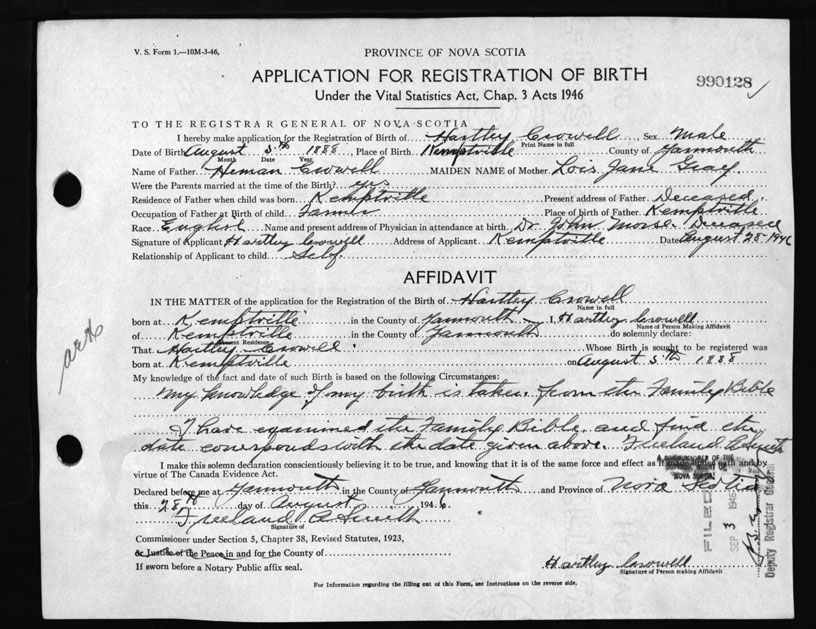 V. S. Form 1.—10M-3-46,
PROVINCE OF NOVA SCOTIA
APPLICATION FOR REGISTRATION OF BIRTH
990128
Under the Vital Statistics Act, Chap. 3 Acts 1946
TO THE REGISTRAR GENERAL OF NOVA SCOTIA
I hereby make application for the Registration of Birth of Hartley Crowell, Sex Male
Print Name in full
Date of Birth August 5th 1888, Place of Birth Kemptville County of Yarmouth
Month Date Year
Name of Father Heman Crowell MAIDEN NAME of Mother Lois Jane Gray
Were the Parents married at the time of the Birth? yes
Residence of Father when child was born Kemptville Present address of Father Deceased
Occupation of Father at Birth of child Farmer Place of birth of Father Kemptville
Race English Name and present address of Physician in attendance at birth Dr John Morse Deceased
Signature of Applicant Hartley Crowell Address of Applicant Kemptville Date August 28-1946
Relationship of Applicant to child Self
AFFIDAVIT
IN THE MATTER of the application for the Registration of the Birth of Hartley Crowell
Name in full
born at Kemptville in the County of Yarmouth I, Hartley Crowell
Name of Person Making Affidavit
of Kemptville in the County of Yarmouth do solemnly declare:
Present Residence
That Hartley Crowell Whose Birth is sought to be registered was
born at Kemptville on August 5th 1888
My knowledge of the fact and date of such Birth is based on the following Circumstances:
My knowledge of my birth is taken from the Family Bible
I have examined the Family Bible and find the
date corresponds with the date given above. Freeland C Smith
A COMMISSIONER OF THE
NOVA SCOTIA
I make this solemn declaration conscientiously believing it to be true, and knowing that it is of the same force and effect as if made under oath and by
virtue of The Canada Evidence Act.
Declared before me at Yarmouth in the County of Yarmouth and Province of Nova Scotia
this 28th day of August 1946
Freeland C Smith
Signature of
Commissioner under Section 5, Chapter 38, Revised Statutes, 1923,
or Justice of the Peace in and for the County of
If sworn before a Notary Public affix seal.
Hartley Crowell
Signature of Person making Affidavit
FILED
SEP 3 1946
Deputy Registrar General
For Information regarding the filling out of this Form, see Instructions on the reverse side.